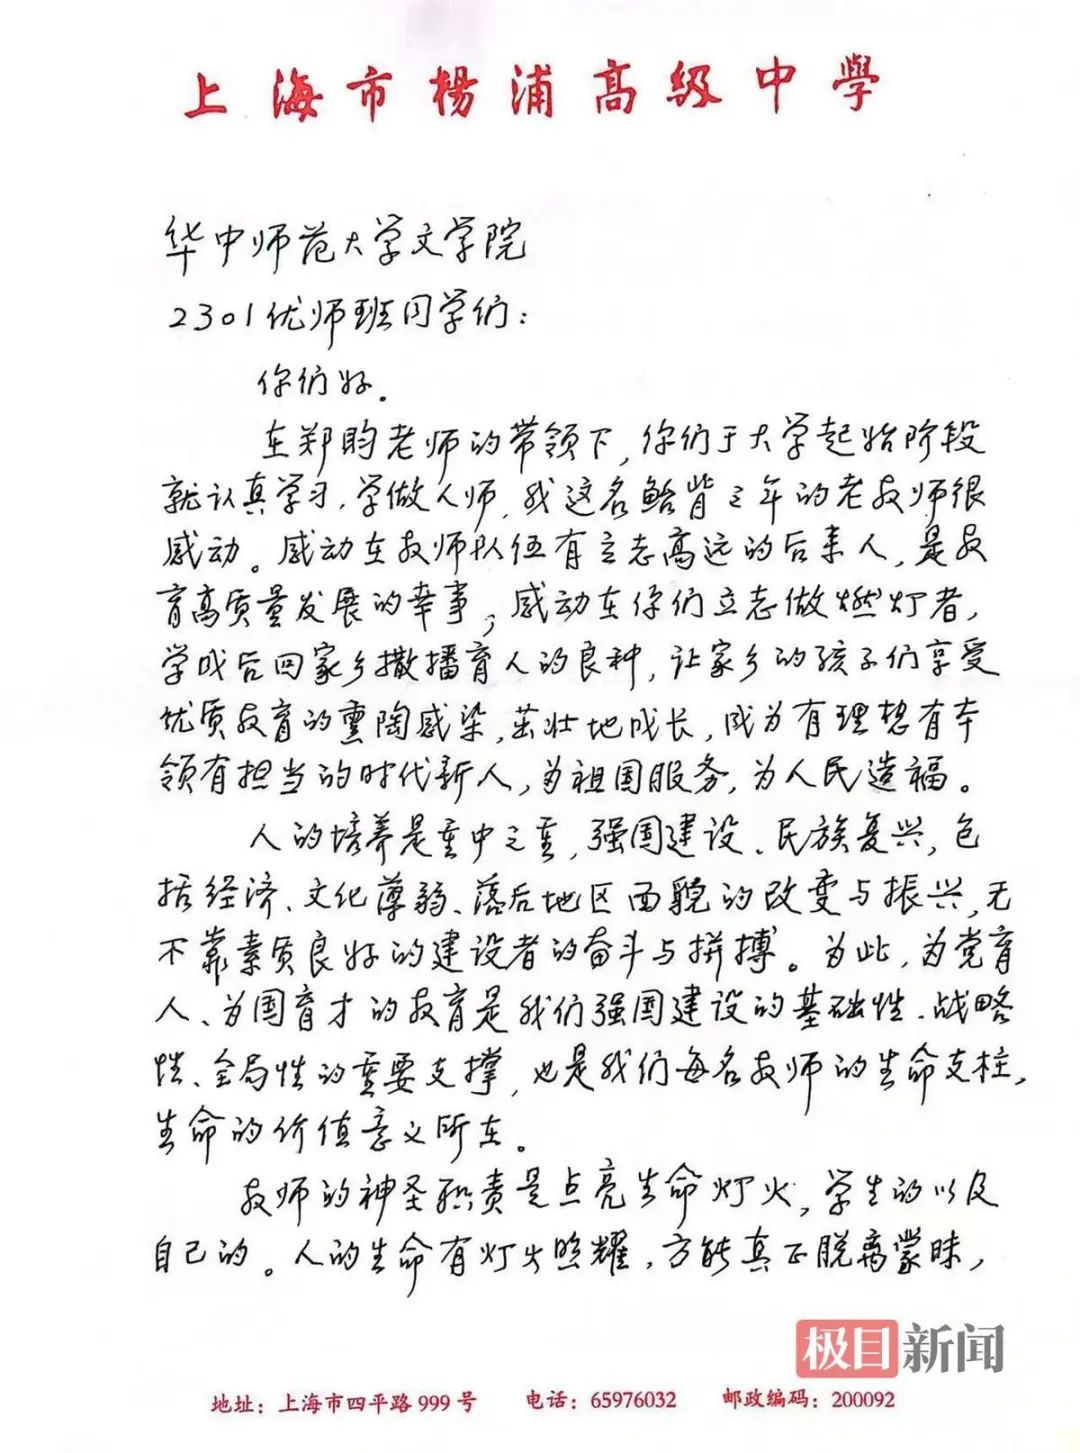 上海市杨浦高级中學
华中师范大学文学院
2301优师班同学们：
你们好.
在郑昀老师的带领下,你们于大学起始阶段
就认真学习,学做人师,我这名鲐背之年的老教师很
感动。感动在教师队伍有立志高远的后来人,是教
育高质量发展的幸事；感动在你们立志做燃灯者,
学成后回家乡撒播育人的良种,让家乡的孩子们享受
优质教育的熏陶感染,茁壮地成长,成为有理想有本
领有担当的时代新人,为祖国服务,为人民造福。
人的培养是重中之重,强国建设、民族复兴,包
括经济、文化薄弱、落后地区面貌的改变与振兴,无
不靠素质良好的建设者的奋斗与拼搏。为此,为党育
人、为国育才的教育是我们强国建设的基础性、战略
性、全局性的重要支撑,也是我们每名教师的生命支柱,
生命的价值意义所在。
教师的神圣职责是点亮生命灯火,学生的以及
自己的。人的生命有灯火照耀,方能真正脱离蒙昧,
极目新闻
地址：上海市四平路999号 电话：65976032 邮政编码：200092